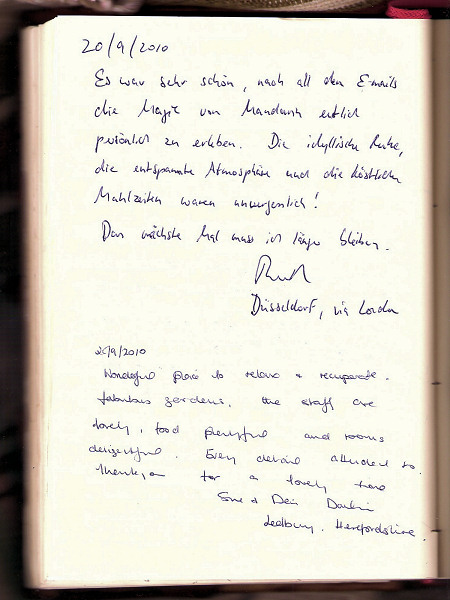 20/9/2010
Es war sehr schön, nach all den E-mails
die Magie von Mandawa endlich
persönlich zu erleben. Die idyllische Ruhe,
die entspannte Atmosphäre und die köstlichen
Mahlzeiten waren unvergesslich!
Das nächste Mal muss ich länger bleiben.
Düsseldorf, via London
9/2010
Wonderful place to relax + recuperate.
fabulous gardens. the staff are
lovely, food plentiful and rooms
delightful. Every detail attended to.
Thank you for a lovely time
Sue &
Ledbury, Herefordshire.